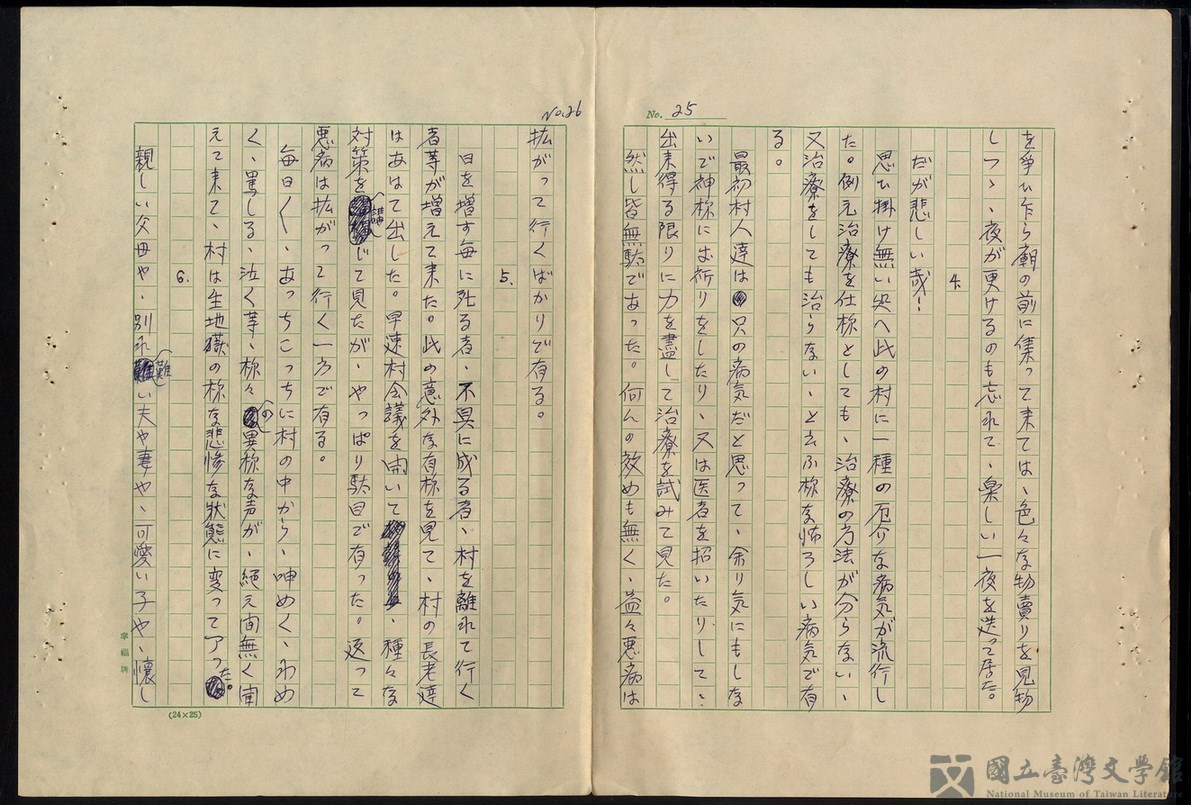 No. 25
を爭ひ乍ら廟の前に集って来ては、色々な物賣りを見物
しつゝ、夜が更けるのも忘れて、楽しい一夜を送って居た。
4.
だが悲しい哉！
思ひ掛け無い処へ此の村に一種の厄介な病気が流行し
た。例え治療を仕様としても、治療の方法が分らない、
又治療をしても治らない、と云ふ様な怖ろしい病気で有
る。
最初村人達は只の病気だと思って、余り気にもしな
いで神様にお祈りをしたり、又は医者を招いたりして⋯
出来得る限りに力を盡して治療を試みて見た。
然し皆無駄であった。何んの效めも無く、益々悪病は
No.26
拡がって行くばかりで有る。
5.
日を増す毎に死る者、不具に成る者、村を離れて行く
者等が増えて来た。此の意外な有様を見て、村の長老達
はあはて出した。早速村会議を開いて、種々な
対策を講じて見たが、やっぱり駄目で有った。返って
悪病は拡がって行く一方で有る。
毎日〱、あっちこっちに村の中から、呻めく、わめ
く、罵しる、泣く等、様々の異様な声が、絶え間無く聞
えて来て、村は生地獄の様な悲惨な状態に変って了った。
6.
親しい父母や、別れ難い夫や妻や、可愛い子や、懐し
幸福牌
(24×25)
國立臺灣文學館
National Museum of Taiwan Literature